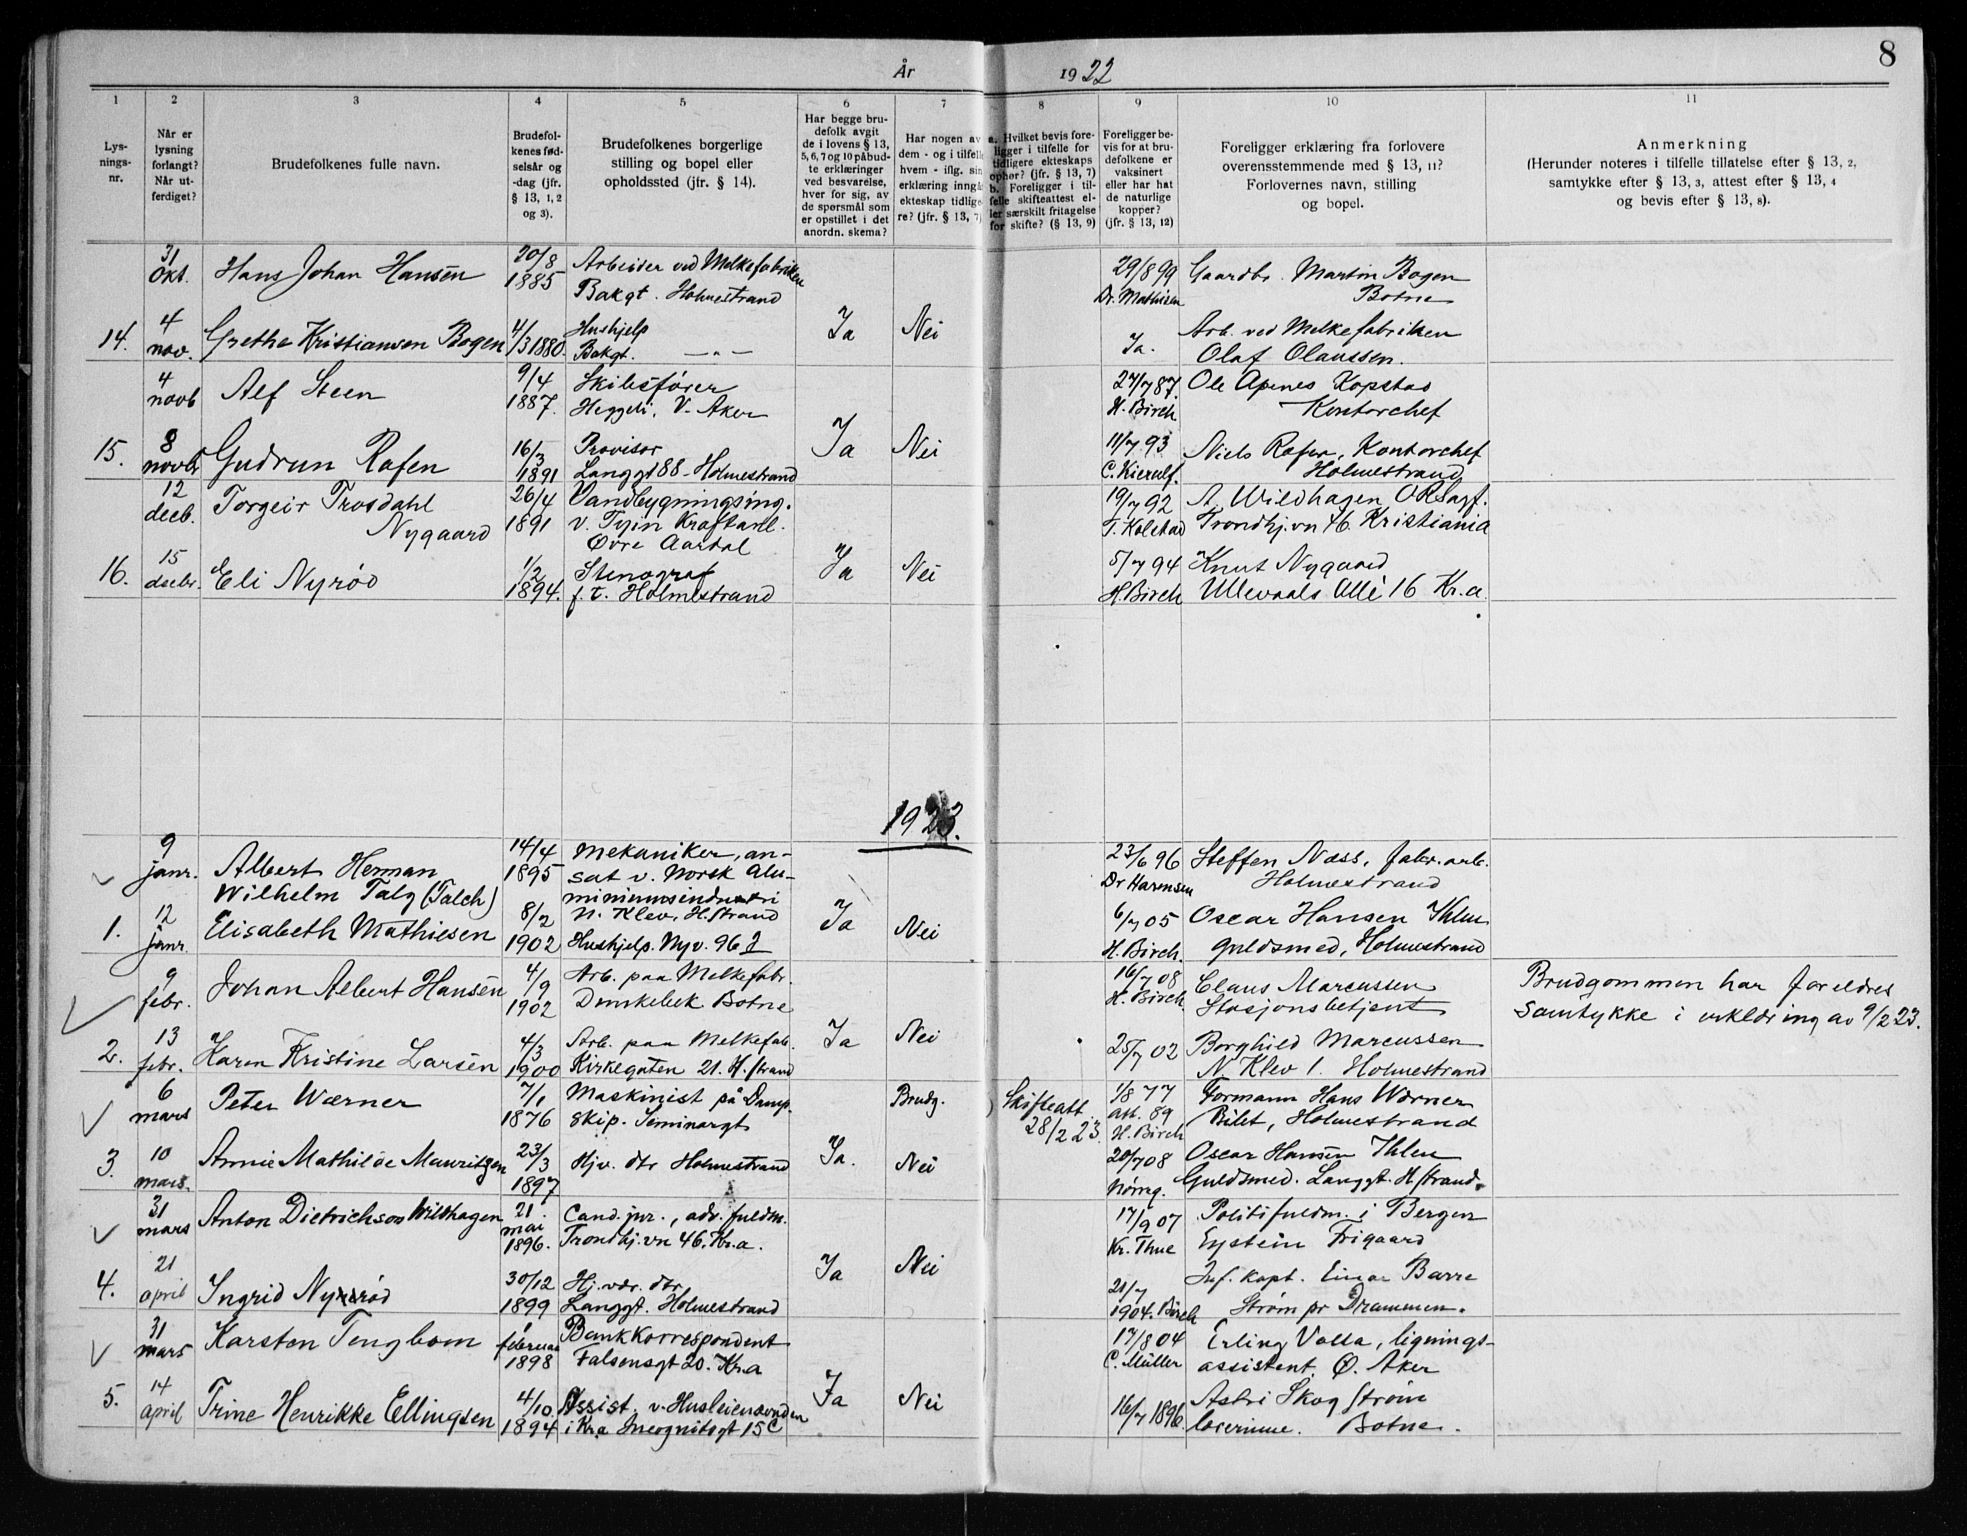 8
År 1922
1 2 3 4 5 6 7 8 9 10 11
Lys-
nings-
nr.
Når er
lysning
forlangt?
Når ut-
ferdiget?
Brudefolkenes fulle navn.
Brudefol-
kenes fød-
selsår og
-dag (jfr.
§ 13, 1, 2
og 3).
Brudefolkenes borgerlige
stilling og bopel eller
opholdssted (jfr. § 14).
Har begge bru-
defolk avgit
de i lovens § 13,
5, 6, 7 og 10 påbud-
te erklæringer
ved besvarelse,
hver for sig, av
de spørsmål som
er opstillet i det
anordn. skema?
Har nogen av
dem - og i tilfelle
hvem - iflg. sin
erklæring inngåt
ekteskap tidlige-
re? (jfr. § 13, 7)
a. Hvilket bevis fore-
ligger i tilfelle for
tidligere ekteskaps
ophør? (jfr. § 13, 7)
b. Foreligger i til-
felle skifteattest el-
ler særskilt fritagelse
for skifte? (§ 13, 9)
Foreligger be-
vis for at bru-
defolkene er
vaksinert
eller har hat
de naturlige
kopper?
(jfr. § 13, 12)
Foreligger erklæring fra forlovere
overensstemmende med § 13, 11?
Forlovernes navn, stilling
og bopel.
Anmerkning
(Herunder noteres i tilfelle tillatelse efter § 13, 2,
samtykke efter § 13, 3, attest efter § 13, 4
og bevis efter § 13, 8).
31 okt. Hans Johan Hansen 20/8 1885 Arbeider ved Melkefabriken
Bakgt. Holmestrand 29/8 99 Dr. Mathisen Gaardbr. Martin Bogen
Botne
14. 4 nov. Grethe Kristiansen Bogen 4/3 1880. Hushjelp
Bakgt. —"— Ja Nei Ja. Arb. ved Melkefabriken
Olaf Olaussen.
4 novb Alf Steen 9/4 1887. Skibsfører
Heggeli, V. Aker 27/7 87. H. Birch Ole Apenes Kopstad
Kontorchef
15. 8 novbr Gudrun Rafen 16/3 1891 Provisor
Langgt 88 - Holmestrand Ja Nei 11/7 93 C. Kierulf. Niels Rafen, Kontorchef
Holmestrand
12 decb. Torgeir Trosdahl
Nygaard 26/4 1891 Vandbygningsing.
v. Tyin Kraftanl.
Øvre Aardal 19/7 92 T. Kolstad A. Wildhagen O.R.sagf.
Trondhj.vn 46 Kristiania
16. 15 decbr. Eli Nyrød 1/2 1894. Stenograf
f. t. Holmestrand Ja Nei 5/7 94 H. Birch Knut Nygaard
Ullevaals Allé 16 Kr.a.
1923.
9 janr. Albert Herman
Wilhelm Talg (Talch) 14/4 1895 Mekaniker, an-
sat v. Norsk Alu-
miniumsindustri
N. Klev, H.strand 23/6 96 Dr Harmsen Steffen Næss, fabr. arb.
Holmestrand
1. 12 janr. Elisabeth Mathiesen 8/2 1902 Hushjelp. Nyv. 96 Ja Nei 6/7 05 H. Birch. Oscar Hansen Ihlen
guldsmed, Holmestrand
9 febr. Johan Albert Hansen 4/9 1902 Arb. paa Melkefabr.
Dunkebek Botne 16/7 08 H. Birch. Claus Marcussen
Stasjonsbetjent Brudgommen har foreldres
samtykke i erklæring av 9/2 23.
2. 13 febr. Karen Kristine Larsen 4/3 1900 Arb. paa Melkefab.
Kirkegaten 21. H.strand Ja Nei 25/7 02 Borghild Marcussen
N. Klev 1. Holmestrand
6 mars Peter Wærner 7/1 1876 Maskinist på Damp.
skip. Seminargt Brudg. Skifteatt.
28/2 23. 1/8 77
att. 89
H. Birch Formann Hans Wærner
Bilet, Holmestrand
3. 10 mars. Annie Mathilde Mauritzen 23/3 1897 Hjv. dtr Holmestrand Ja. Nei 20/7 08 Oscar Hansen Ihlen
Guldsmed. Langgt. H.strand.
31 mars Anton Dietrichson Wildhagen 21. mai 1896. Cand. jur., adv. fuldm.
Trondhj.vn 46. Kr.a. 17/9 07 Kr. Thue Politifuldm. i Bergen
Eystein Frigaard
4. 21 april Ingrid Nyrød 30/12 1899 Hj.vær. dtr
Langgt. Holmestrand Ja Nei 21/7 1904. Birch Inf. kapt. Einar Barre
Strøm pr Drammen.
31 mars Karsten Tengbom 1 februar 1898 Bankkorrespondent
Falsensgt 20. Kr.a 17/8 04 C. Müller Erling Valla, lignings-
assistent Ø. Aker
5. 14 april Trine Henrikke Ellingsen 4/10 1894 Assist. v. Husleienævnden
i Kr.a Incognitogt 15 C Ja Nei 16/7 1896. Astri Skog Strøm
lærerinne. Botne.